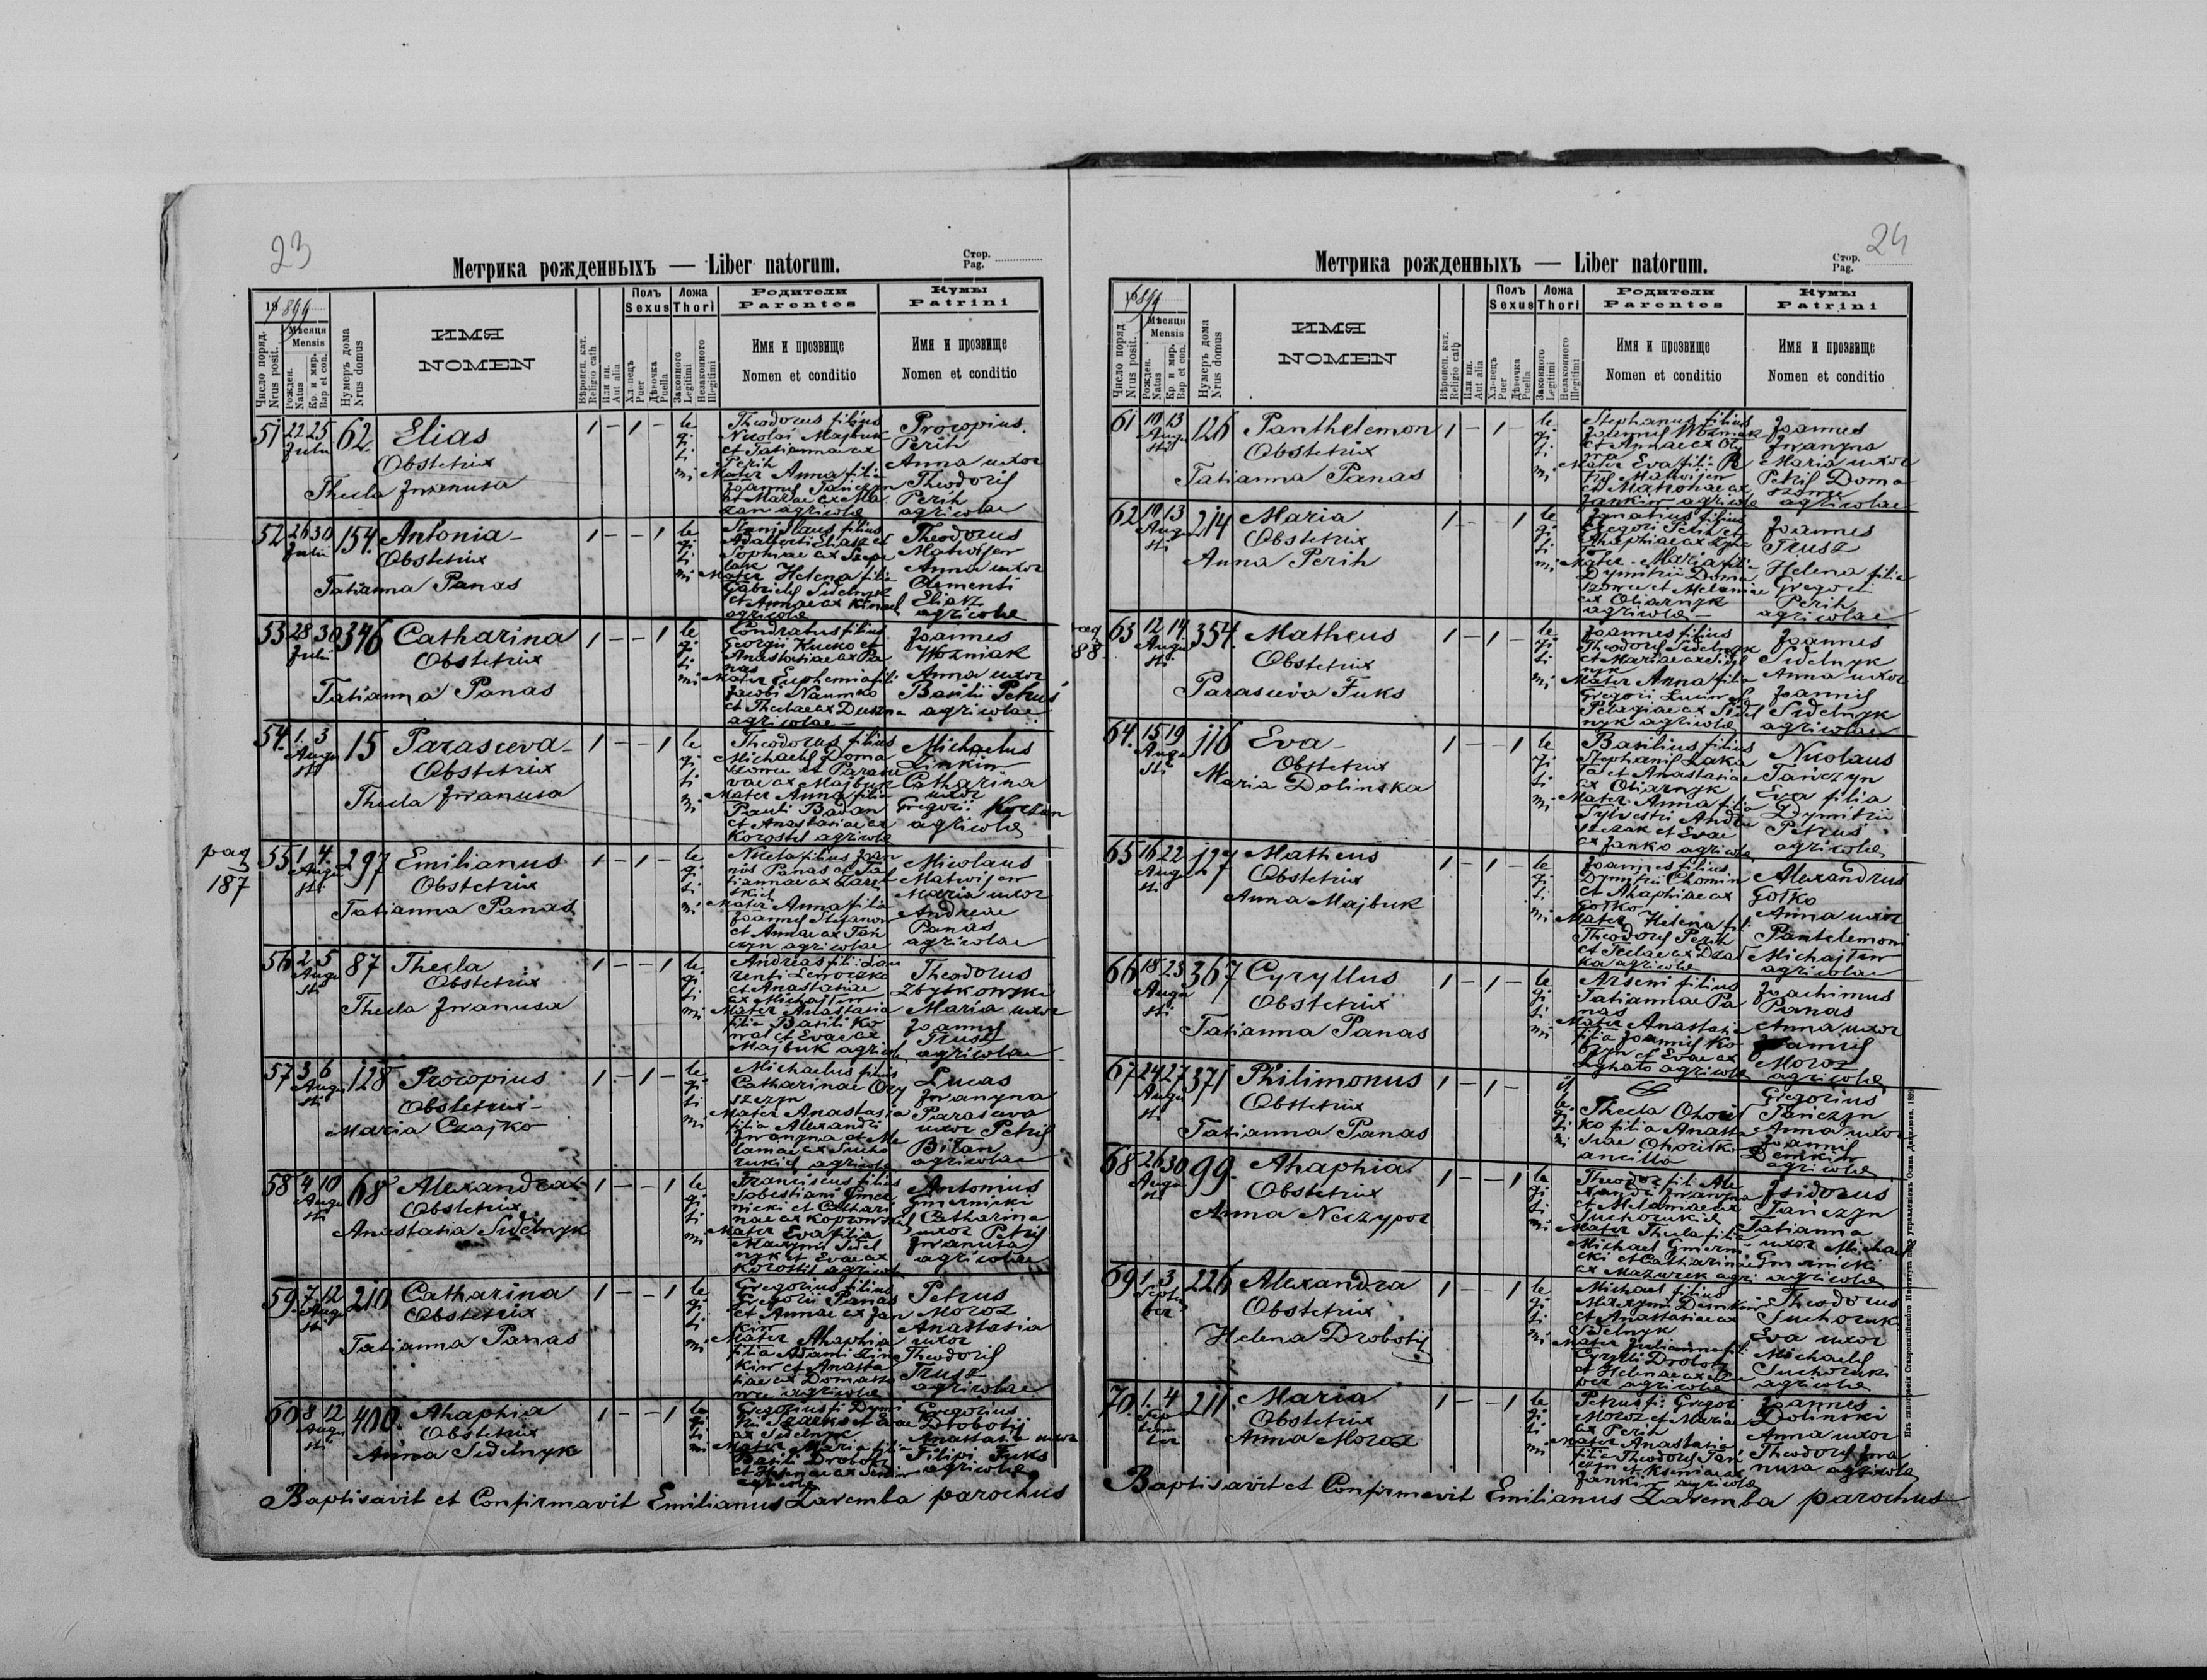 23
Метрика рожденныхъ — Liber natorum.
Стор.
Pag.
1899
Число поряд.
Nrus posit.
Мѣсяця
Mensis
Рожден.
Natus
Кр. и мир.
Bap et con.
Нумеръ дома
Nrus domus
ИМЯ
NOMEN
Вѣроисп. кат.
Religio cath
Или ин.
Aut alia
Полъ
Sexus
Хлопецъ
Puer
Дѣвочка
Puella
Ложа
Thori
Законного
Legitimi
Незаконного
Illegitimi
Родители
Parentes
Имя и прозвище
Nomen et conditio
Кумы
Patrini
Имя и прозвище
Nomen et conditio
51 22 25 Julii 62 Elias
Obstetrix
Thecla Iwanusa
1 – 1 – legitimi
Theodorus filius
Nicolai Majbuk
et Tatianna ex
Perih
Mater Anna filia
Joannis Tańczyn
et Mariae ex Ma
zan agricolae
Procopius
Perih
Anna uxor
Theodoris
Perih
agricolae
52 26 30 Julii 154. Antonia
Obstetrix
Tatianna Panas
1 – – 1 legitimi
Stanislaus filius
Adalberti Eliasz et
Sophiae ex
Mater Helena filia
Gabrielis Sidelnyk
et Annae ex
agricolae
Theodorus
Matwijow
Anna uxor
Clementi
Eliasz
agricolae
53 28 30 Julii 346 Catharina
Obstetrix
Tatianna Panas
1 – – 1 legitimi
Condratus filius
Georgii Kucko et
Anastasiae ex Pa
nas
Mater Euphemia fili
Jacobi Naumko
et Theclae ex
agricolae
Joannes
Wozniak
Anna uxor
Basilii Petrus
agricolae
54. 1. 3 Augusti 15 Parasceva
Obstetrix
Thecla Iwanusa
1 – – 1 legitimi
Theodorus filius
Michaelis Doma
szowec et Parasce
vae ex Majbuk
Mater Anna filia
Pauli Badan
et Anastasiae ex
Korostel agricolae
Michaelus
Zinkiw
Catharina
uxor
Gregorii
agricolae
pag
187
55 1 4. Augusti 297 Emilianus
Obstetrix
Tatianna Panas
1 – 1 – legitimi
Niceta filius Joan
nis Panas et Ta
tiannae ex
Mater Anna filia
Joannis Stefanow
et Annae ex Tań
czyn agricolae
Nicolaus
Matwijow
Maria uxor
Andreae
Panas
agricolae
56 2 5 Augusti 87 Thecla
Obstetrix
Thecla Iwanusa
1 – – 1 legitimi
Andreas fili: Lau
renti
et Anastasiae
ex Michajłiw
Mater Anastasia
filia Basili Ko
wal et Evae ex
Majbuk agricolae
Theodorus
Zbytkowski
Maria uxor
Joannis
Trusz
agricolae
57 3 6 Augusti 128 Procopius
Obstetrix
Maria Czajko
1 – 1 – legitimi
Michaelus filius
Catharinae Ory
szczyn
Mater Anastasia
filia Alexandri
Iwanyna et Me
laniae ex Sucho
rukich agricolae
Lucas
Iwanyna
Parasceva
uxor Petris
Bilan
agricolae
58 4 10 Augusti 68 Alexandra
Obstetrix
Anastasia Sidelnyk
1 – – 1 legitimi
Franciscus filius
Sabestiani Gmer
nicki et Cathari
nae ex Koprowska
Mater Eva filia
Maxymi Sidel
nyk et Evae ex
Korostil agricol
Antonius
Gmernicki
Catharina
uxor Petris
Iwanusa
agricolae
59. 7 12 Augusti 210 Catharina
Obstetrix
Tatianna Panas
1 – – 1 legitimi
Gregorius filius
Gregorii Panas
et Annae ex Jan
kiw
Mater Ahaphia
filia Adami Zin
kiw et Anasta
siae ex Domaszo
wec agricolae
Petrus
Moroz
Anastasia
uxor
Theodoris
Trusz
agricolae
60 8 12 Augusti 400. Ahaphia
Obstetrix
Anna Sidelnyk
1 – – 1 legitimi
Gregorius fi: Dymi
tri et Evae
ex Sidelnyk
Mater Maria filia
Basili Drobotij
agricolae
Gregorius
Drobotij
Anastasia uxor
Filipi Fuks
agricolae
Baptisavit et Confirmavit Emilianus Zaremba parochus
24
Метрика рожденныхъ — Liber natorum.
Стор.
Pag.
1899
Число поряд.
Nrus posit.
Мѣсяця
Mensis
Рожден.
Natus
Кр. и мир.
Bap et con.
Нумеръ дома
Nrus domus
ИМЯ
NOMEN
Вѣроисп. кат.
Religio cath
Или ин.
Aut alia
Полъ
Sexus
Хлопецъ
Puer
Дѣвочка
Puella
Ложа
Thori
Законного
Legitimi
Незаконного
Illegitimi
Родители
Parentes
Имя и прозвище
Nomen et conditio
Кумы
Patrini
Имя и прозвище
Nomen et conditio
61 10 13 Augusti 126 Panthelemon
Obstetrix
Tatianna Panas
1 – 1 – legitimi
Stephanus filius
Joannis Wozniak
et Annae ex
Mater Eva fili: Pe
tris Matwijow
et Matronae ex
Jankiw agricolae
Joannes
Iwanyna
Maria uxor
Petris Doma
szowec
agricolae
62 10 13 Augusti 214 Maria
Obstetrix
Anna Perih
1 – – 1 legitimi
Ignatius filius
Gregori Perih et
Ahaphiae ex
Mater Maria filia
Dymitrii Doma
szowec et Melaniae
ex Oliarnyk
agricolae
Joannes
Trusz
Helena filia
Gregori
Perih
agricolae
pag
88
63 12 14. Augusti 354. Matheus
Obstetrix
Parasceva Fuks
1 – 1 – legitimi
Joannes filius
Theodoris Sidelnyk
et Mariae ex Sidel
nyk
Mater Anna filia
Gregorii
Pelagiae ex Sidel
nyk agricolae
Joannes
Sidelnyk
Anna uxor
Joannis
Sidelnyk
agricolae
64. 15 19 Augusti 116 Eva
Obstetrix
Maria Dolinska
1 – – 1 legitimi
Basilius filius
Stephanis
et Anastasiae
ex Oliarnyk
Mater Anna filia
Sylvestri Andru
szczak et Evae
ex Janko agricolae
Nicolaus
Tańczyn
Eva filia
Dymitrii
Petrus
agricolae
65 16 22 Augusti 127 Matheus
Obstetrix
Anna Majbuk
1 – 1 – legitimi
Joannes filius
Dymitrii Chomin
et Ahaphiae ex
Gołko
Mater Helena fil:
Theodoris Perih
et Teclae ex
agricolae
Alexandrus
Gołko
Anna uxor
Pantelemon
Michajłiw
agricolae
66 18 23 Augusti 367 Cyryllus
Obstetrix
Tatianna Panas
1 – 1 – legitimi
Arseni filius
Tatiannae Pa
nas
Mater Anastasia
filia Joannis
et Evae ex
agricolae
Joachimus
Panas
Anna uxor
Joannis
Moroz
agricolae
67 24 27 Augusti 371 Philimonus
Obstetrix
Tatianna Panas
1 – 1 – illegitimi
Thecla Ohorił
ko filia Anasta
siae Ohoriłko
ancilla
Gregorius
Tańczyn
Anna uxor
Joannis
Demkiw
agricolae
68 26 30 Augusti 99. Ahaphia
Obstetrix
Anna Neczypor
1 – – 1 legitimi
Theodor fil: Ale
xandri Iwanyna
et Melaniae ex
Suchorukich
Mater Thecla filia
Michael Gmerni
cki et Catharinae
ex Mazurek agri
Isidorus
Tańczyn
Tatianna
uxor Michael
Gmernicki
agricolae
69 1 3 September 226 Alexandra
Obstetrix
Helena Drobotij
1 – – 1 legitimi
Michael filius
Maxymi Demkiw
et Anastasiae ex
Sidelnyk
Mater Julianna fil:
Cyrylli Drobotij
et Helenae ex
agricolae
Theodorus
Suchoruk
Eva uxor
Michaelis
Suchoruki
agricolae
70. 1. 4 September 211. Maria
Obstetrix
Anna Moroz
1 – – 1 legitimi
Petrus fi: Gregori
Moroz et Maria
ex Perih
Mater Anastasia
filia Theodoris Tań
czyn et Kseniae ex
Jankiw agricolae
Joannes
Dolinski
Anna uxor
Theodoris Iwa
nusa agricolae
Baptisavit et Confirmavit Emilianus Zaremba parochus